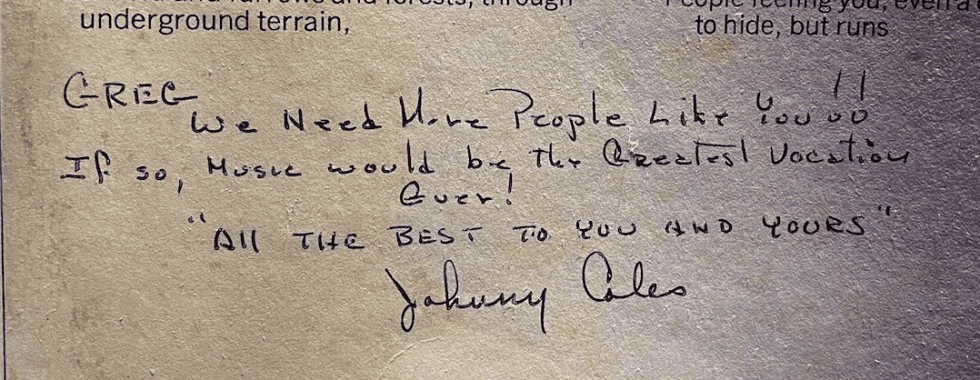 and furrows and forests, through
People feeling you, even a
underground terrain,
to hide, but runs
GREG
We Need More People Like You!!
If so, Music would be The Greatest Vocation
Ever!
"All THE BEST TO YOU AND YOURS"
Johnny Coles